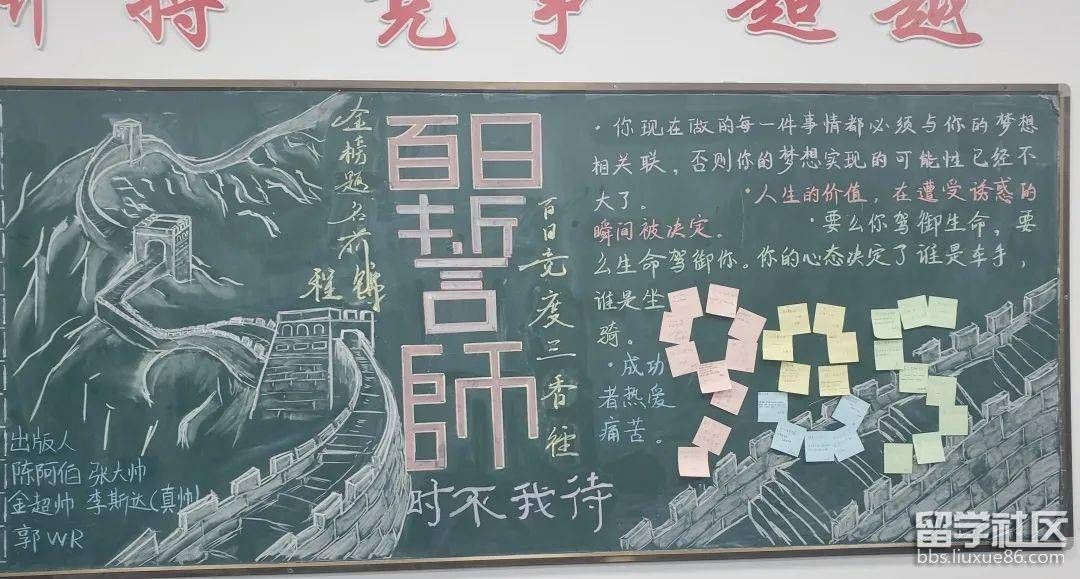 搏 竞争 超越
金榜题名前
程锦
百日
誓
師
百日竞度
香
时不我待
·你现在做的每一件事情都必须与你的梦想
相关联，否则你的梦想实现的可能性已经不
大了。 ·人生的价值，在遭受诱惑的
瞬间被决定。 ·要么你驾御生命，要
么生命驾御你。你的心态决定了谁是车手，
谁是坐
骑。
·成功
者热爱
痛苦。
985
出版人
陈阿伯 张大帅
金超帅 李斯达(真帅)
郭WR
留学社区
bbs.liuxue86.com